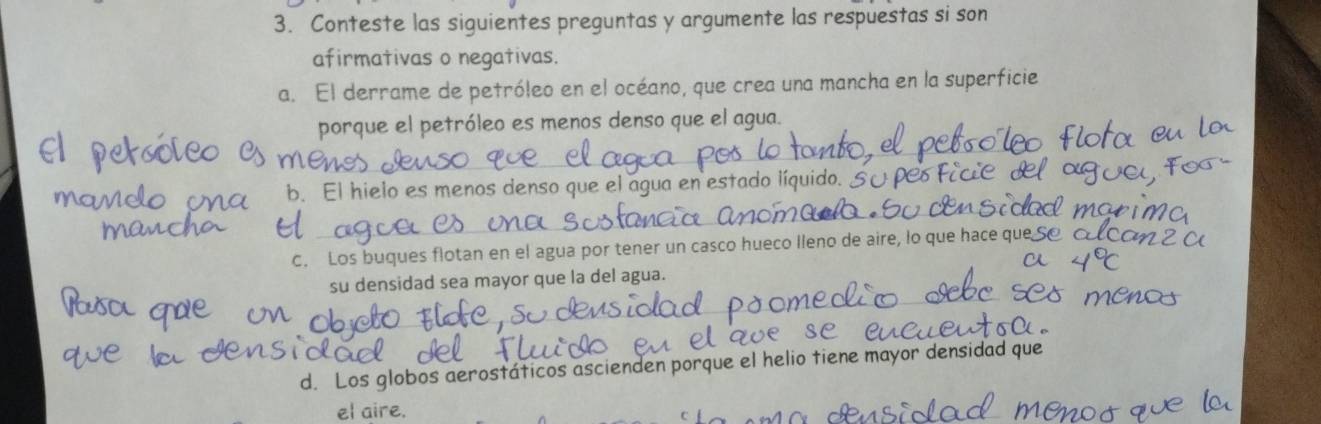 3. Conteste las siguientes preguntas y argumente las respuestas si son
afirmativas o negativas.
a. El derrame de petróleo en el océano, que crea una mancha en la superficie
porque el petróleo es menos denso que el agua.
el petróleo es menos denso que el agua por lo tanto, el petróleo flota en la
superficie del agua, for-
mando una
mancha
b. El hielo es menos denso que el agua en estado líquido.
El agua es una sustancia anomala. Su densidad marima
se alcanza
a 4°C
c. Los buques flotan en el agua por tener un casco hueco lleno de aire, lo que hace que
su densidad sea mayor que la del agua.
Para que un objeto flote, su densidad promedio debe ser menor
que la densidad del fluido en el que se encuentra.
d. Los globos aerostáticos ascienden porque el helio tiene mayor densidad que
el aire.
una densidad menor que la